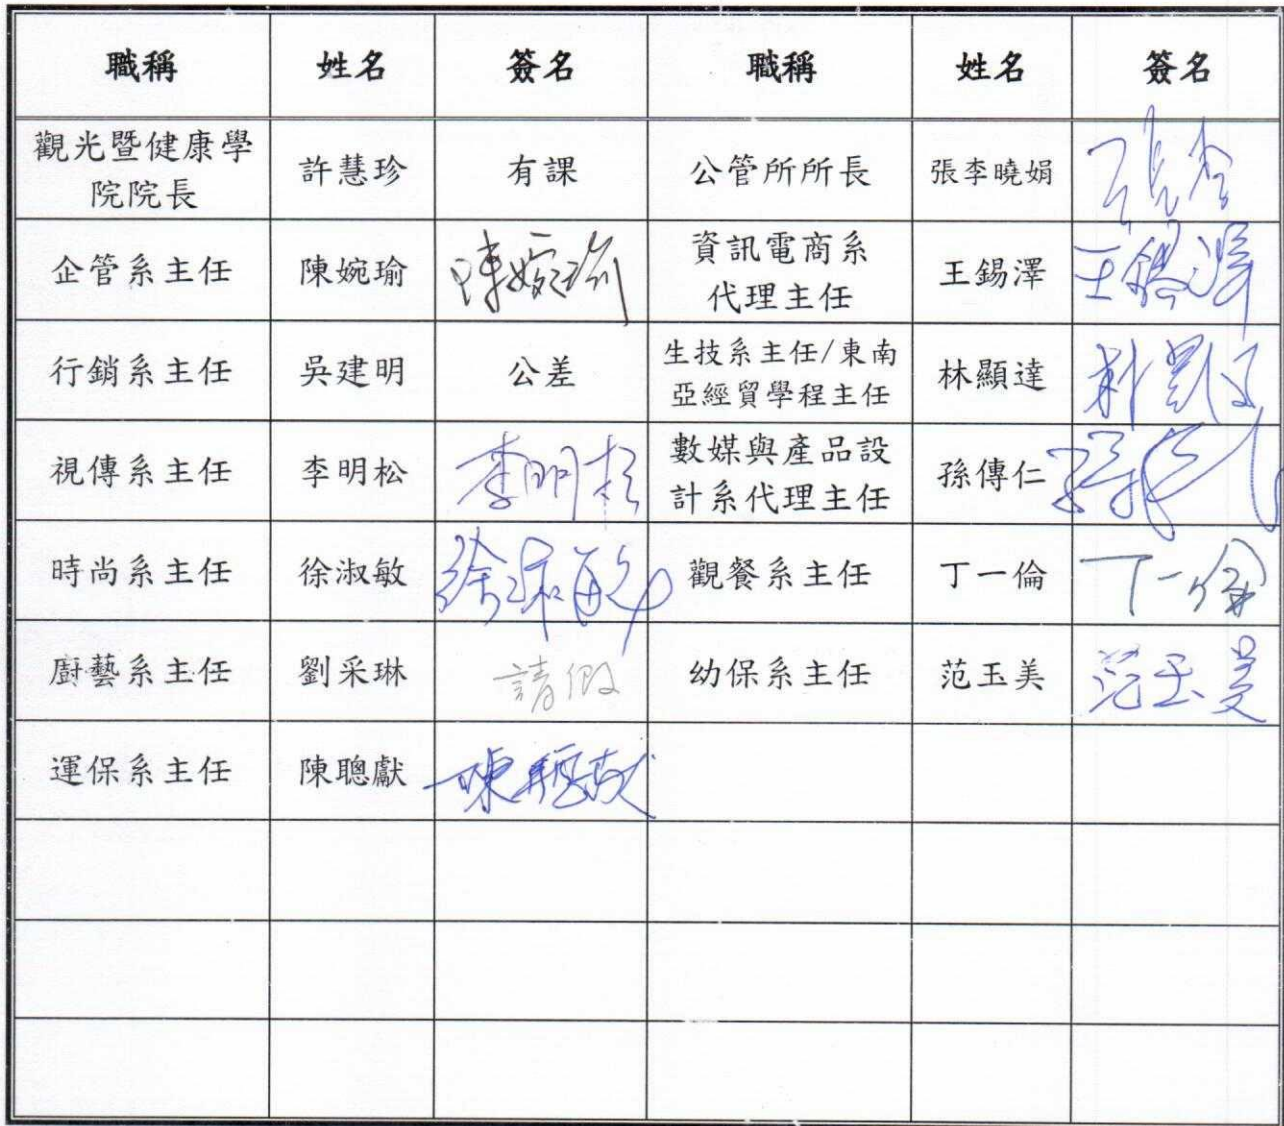 職稱 姓名 簽名 職稱 姓名 簽名
觀光暨健康學
院院長 許慧珍 有課 公管所所長 張李曉娟
企管系主任 陳婉瑜 陳婉瑜 資訊電商系
代理主任 王錫澤 王錫澤
行銷系主任 吳建明 公差 生技系主任/東南
亞經貿學程主任 林顯達
視傳系主任 李明松 李明松 數媒與產品設
計系代理主任 孫傳仁
時尚系主任 徐淑敏 徐淑敏 觀餐系主任 丁一倫 丁一倫
廚藝系主任 劉采琳 請假 幼保系主任 范玉美 范玉美
運保系主任 陳聰獻 陳聰獻